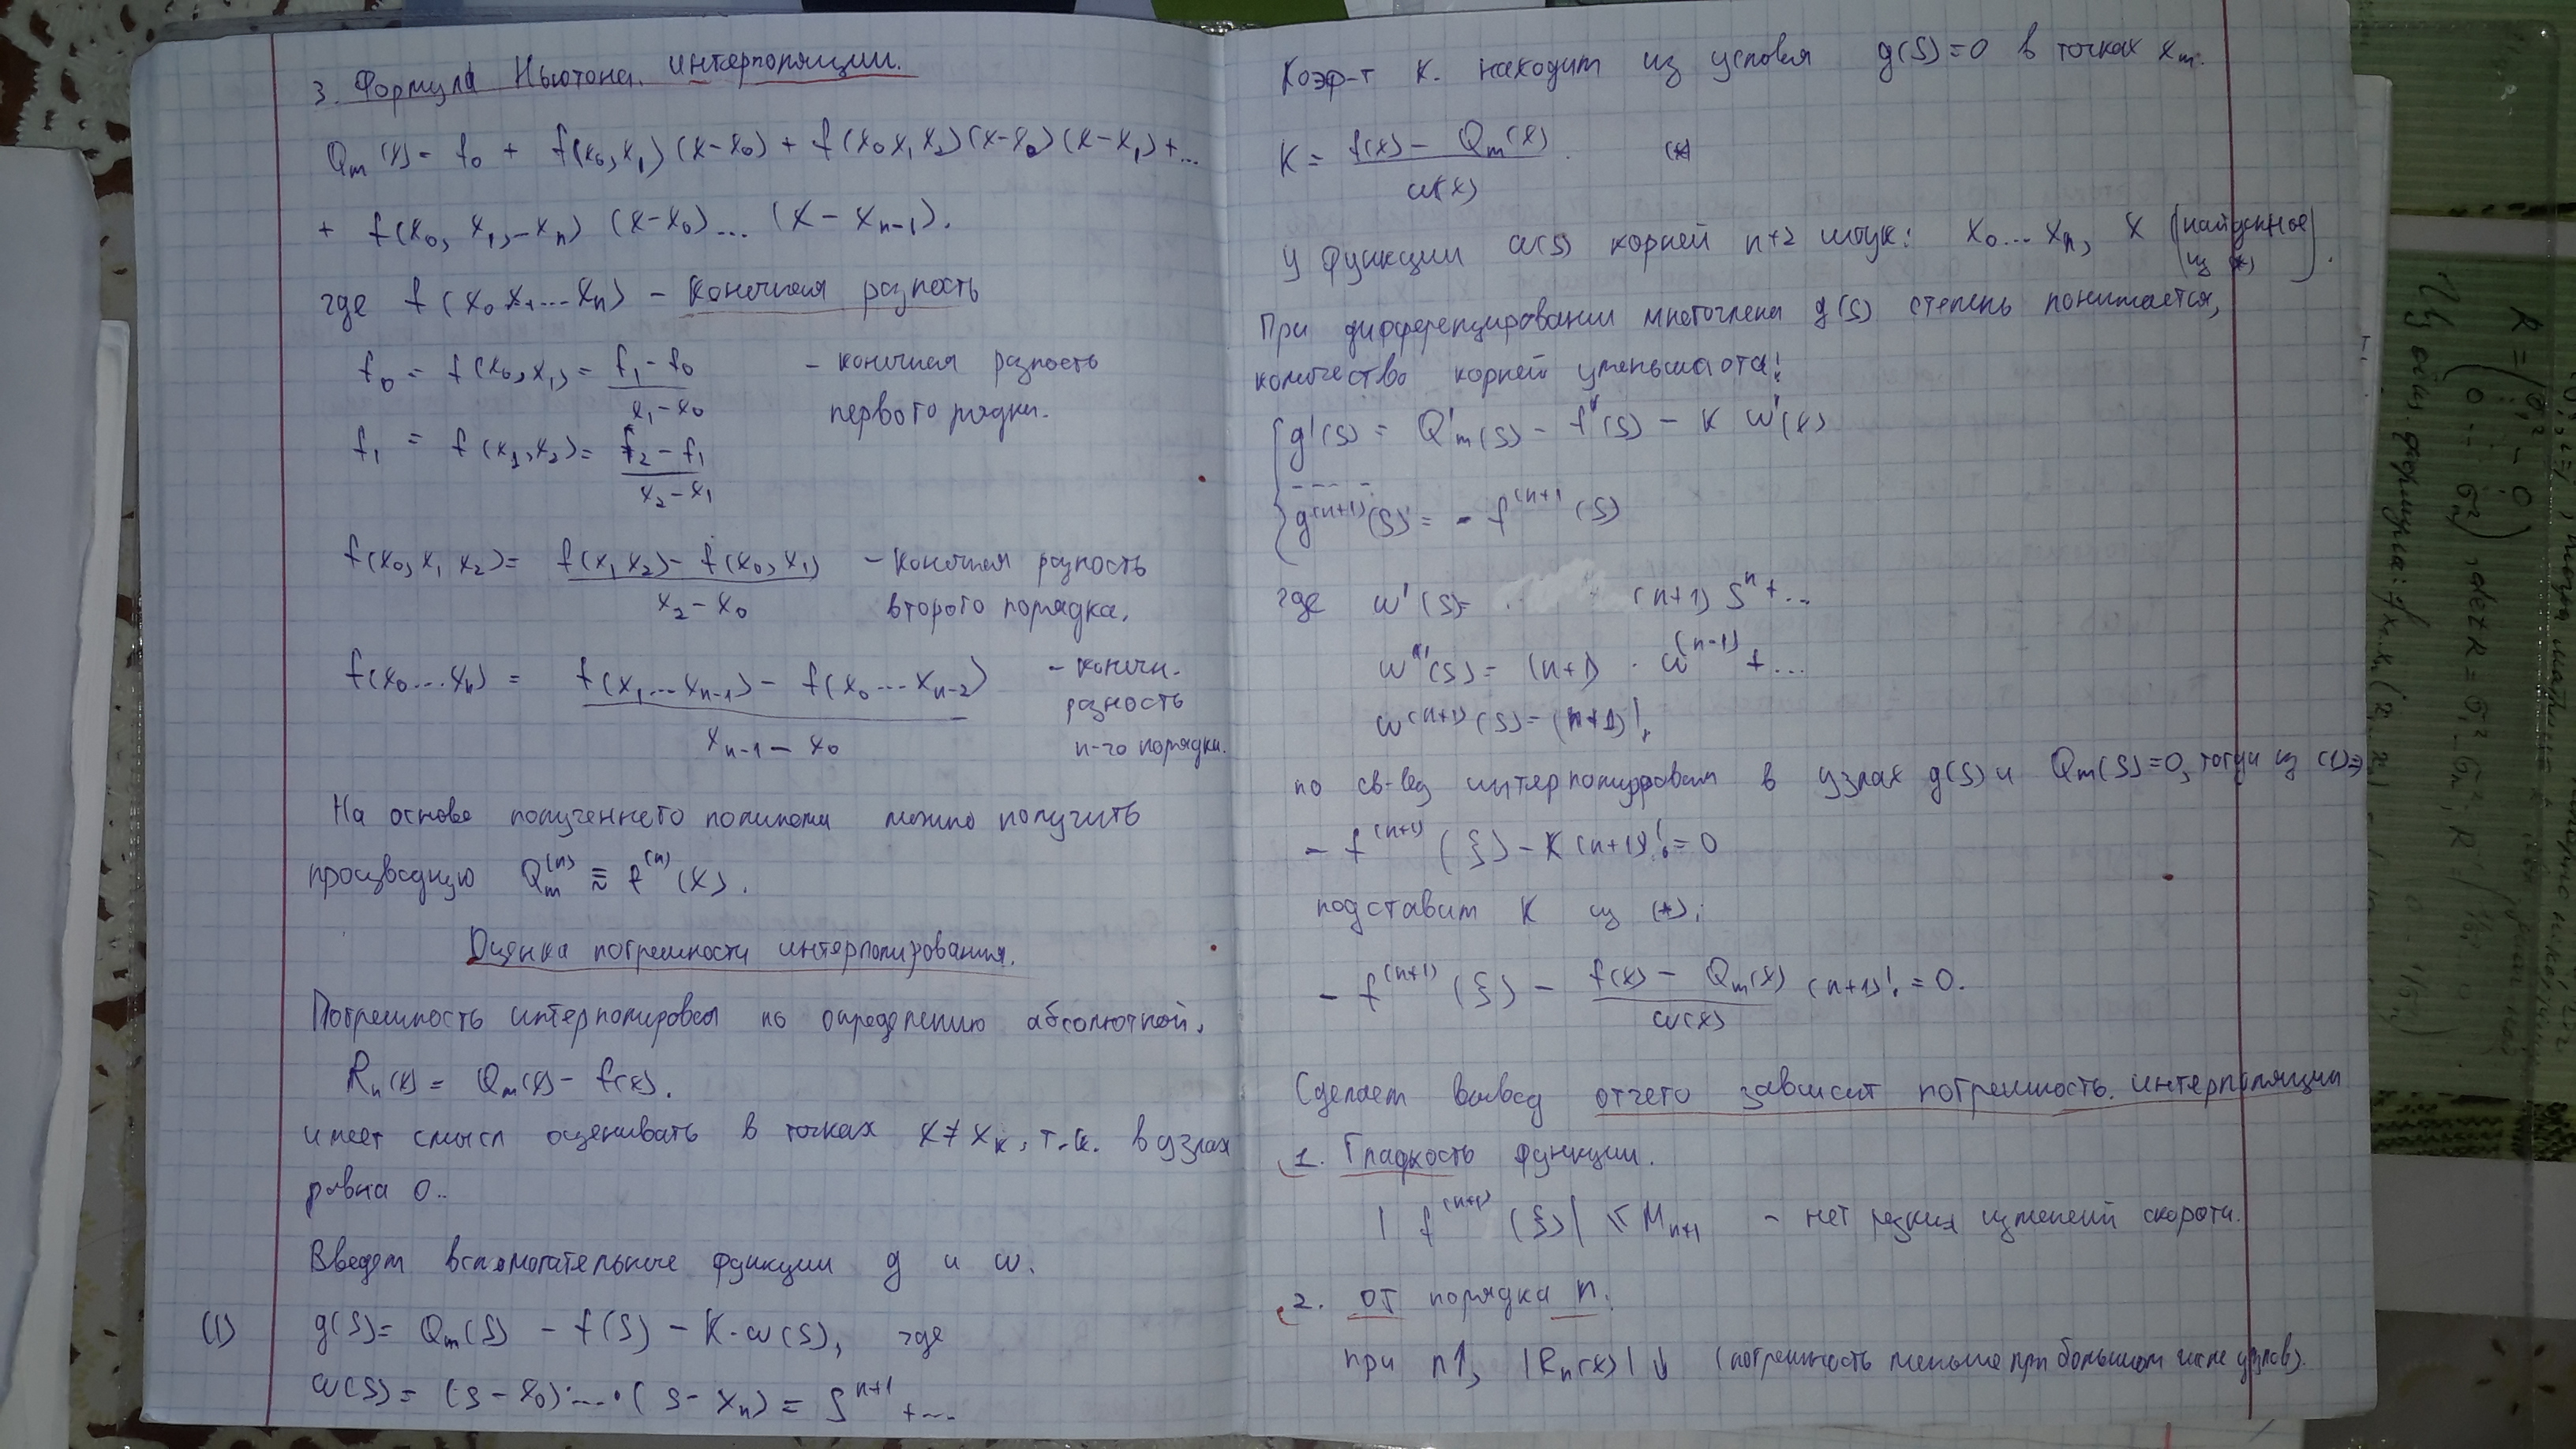 3. Формула Ньютона интерполяции.
Qₘ(x) = f₀ + f(x₀, x₁)(x-x₀) + f(x₀ x₁ x₂)(x-x₀)(x-x₁)+...
+ f(x₀, x₁, – xₙ)(x-x₀)... (x - xₙ₋₁).
где f(x₀ x₁... xₙ) - конечная разность
f₀ = f(x₀, x₁) = (f₁ - f₀)/(x₁ - x₀) - конечная разность
первого порядк.
f₁ = f(x₁, x₂) = (f₂ - f₁)/(x₂ - x₁)
f(x₀, x₁ x₂) = (f(x₁ x₂) - f(x₀, x₁))/(x₂ - x₀) - конечная разность
второго порядка.
f(x₀...xₙ) = (f(x₁...xₙ₋₁) - f(x₀...xₙ₋₂))/(xₙ₋₁ - x₀) - конечн.
разность
n-го порядка.
На основе полученного полинома можно получить
производную Qₘ⁽ⁿ⁾ ≅ f⁽ⁿ⁾(x).
Оценка погрешности интерполирования.
Погрешность интерполирования по определению абсолютной,
Rₙ(x) = Qₘ(x) - f(x).
имеет смысл оценивать в точках x ≠ xₖ, т.к. в узлах
равна 0..
Введем вспомогательные функции g и w.
(1) g(s) = Qₘ(s) - f(s) - K·w(s), где
w(s) = (s - x₀)·...·(s - xₙ) = sⁿ⁺¹ + ...
Коэф-т K. находит из условия g(s)=0 в точках xₘ.
K = (f(x) - Qₘ(x))/w(x). (*)
У функции w(s) корней n+2 штук: x₀... xₙ, x (найденное
из *).
При дифференцировании многочлена g(s) степень понижается,
количество корней уменьшается!
{ g'(s) = Q'ₘ(s) - f'(s) - K w'(x)
- - - -
g⁽ⁿ⁺¹⁾(s) = - f⁽ⁿ⁺¹⁾(s)
где w'(s) = (n+1) sⁿ + ...
w''(s) = (n+1) · w⁽ⁿ⁻¹⁾ + ...
w⁽ⁿ⁺¹⁾(s) = (n+1)!
по св-ву интерполирования в узлах g(s) и Qₘ(s)=0, тогда из (1)⇒
- f⁽ⁿ⁺¹⁾(ξ) - K(n+1)! = 0
подставим K из (*):
- f⁽ⁿ⁺¹⁾(ξ) - (f(x) - Qₘ(x))/w(x) (n+1)! = 0.
Сделаем вывод отчего зависит погрешность интерполяции
1. Гладкость функции.
| f⁽ⁿ⁺¹⁾(ξ)| ≤ Mₙ₊₁ - нет резких изменений скорости.
2. От порядка n.
при n↑, |Rₙ(x)| ↓ (погрешность меньше при большом числе узлов).